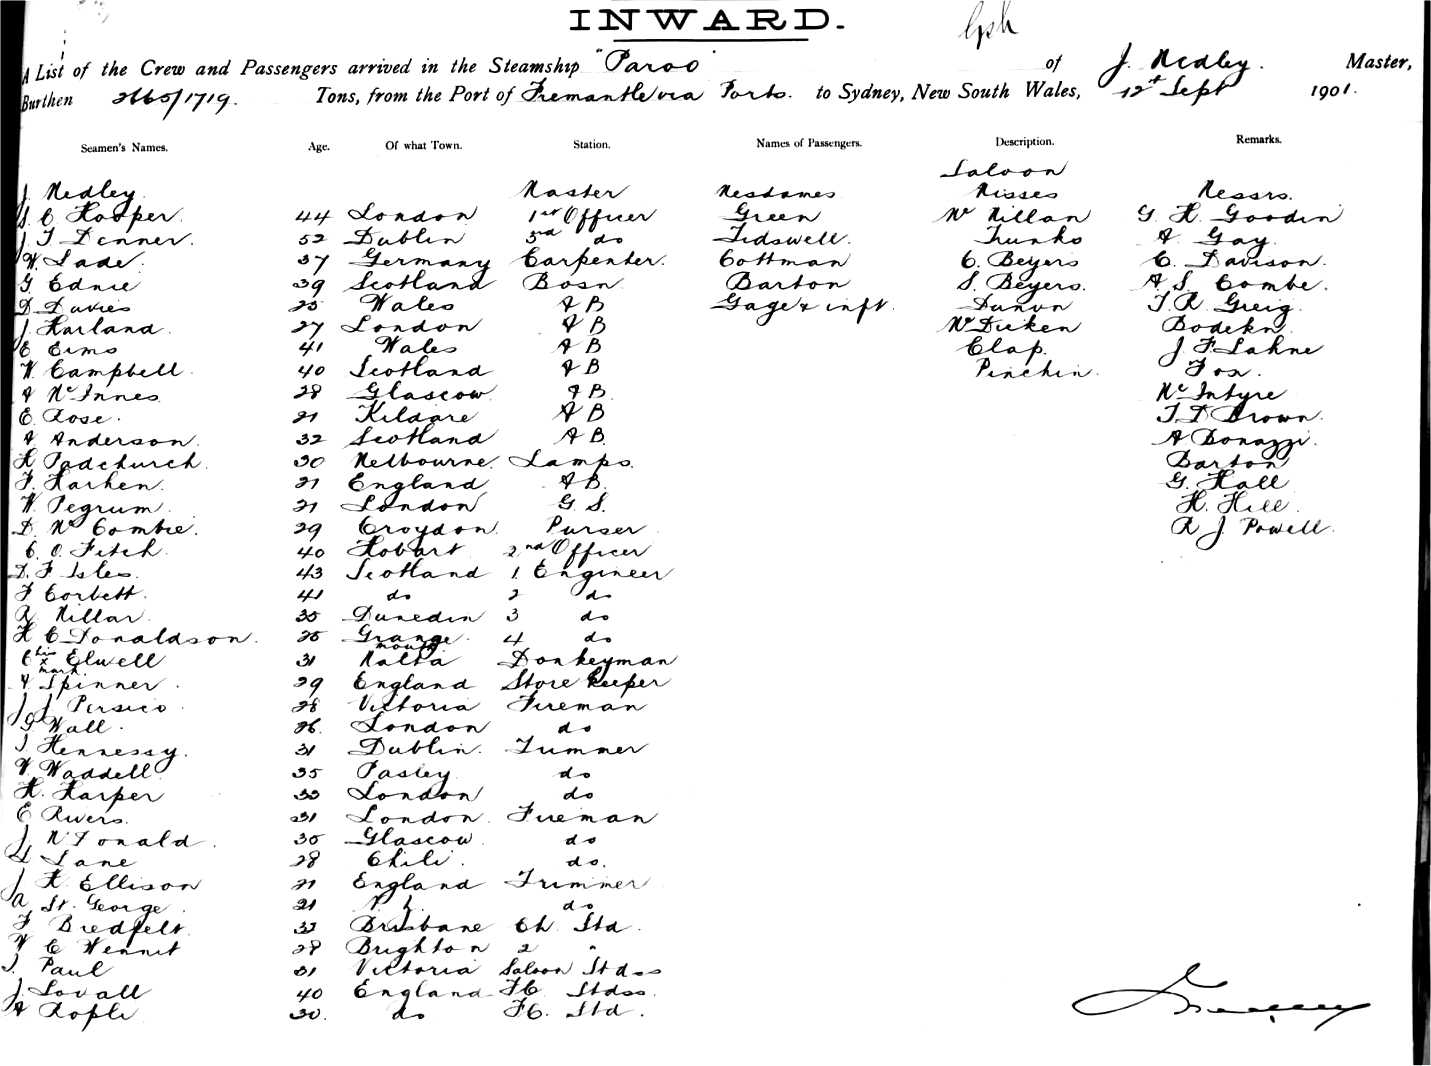 INWARD.
A List of the Crew and Passengers arrived in the Steamship "Paroo" of J. Medley. Master,
Burthen 2665/1719. Tons, from the Port of Fremantle via Ports. to Sydney, New South Wales, 12th Sept 1901.
Seamen's Names. Age. Of what Town. Station. Names of Passengers. Description. Remarks.
Saloon
J. Medley. Master Mesdames Misses Messrs.
C Hooper. 44 London 1st Officer Green Mc Millan G. H. Goodin
J T Denner. 52 Dublin 3rd do Tidswell. Trunks A Gay.
W. Lade. 37 Germany Carpenter. Cottman C. Beyers C. Davison.
G Ednie 39 Scotland Bosn Barton S. Beyers. A S Combe.
D Davies 25 Wales A B Gage & inft. Dunon T. R. Greig.
J Harland. 27 London A B Mc Dicken Bodekn.
E Eims 41 Wales A B Clap. J F Lahne
W. Campbell 40 Scotland A B Pinchin. Fox.
A McInnes 28 Glascow A B. McIntyre
E. Rose. 21 Kildare A B T. D Brown.
A Anderson. 32 Scotland A B. A Bonazzi.
H Padchurch. 30 Melbourne. Lamps. Barton
F. Harken. 21 England A B. G. Hall
W. Pegrum. 21 London G. S. H. Hill.
D. Mc Combie. 29 Croydon. Purser. R J. Powell.
C. O. Fitch. 40 Hobart 2nd Officer
D. F Isles. 43 Scotland 1. Engineer
F Corbett. 41 do 2 do
R Millar. 35 Dunedin 3 do
H C Donaldson. 25 Grange mouth 4 do
C his x mark Elwell 31 Malta Donkeyman
Spinner. 29 England Store keeper
J J Persico. 28 Victoria Fireman
G Wall. 26. London do
J Hennessy. 31 Dublin. Trimmer
W Waddell 35 Pasley do
H. Harper 33 London do
E Rivers. 31 London. Fireman
J McDonald. 35 Glascow. do
Lane 28 Chili. do.
J H. Ellison 21 England Trimmer
A St. George. 21 do
F Biedfelt. 33 Brisbane Ch. Std.
W C Wennit 28 Brighton 2 "
J. Paul 31 Victoria Saloon Stdss
J. Lovall 40 England FC. Stdss.
A Rople 30. do FC. Std.